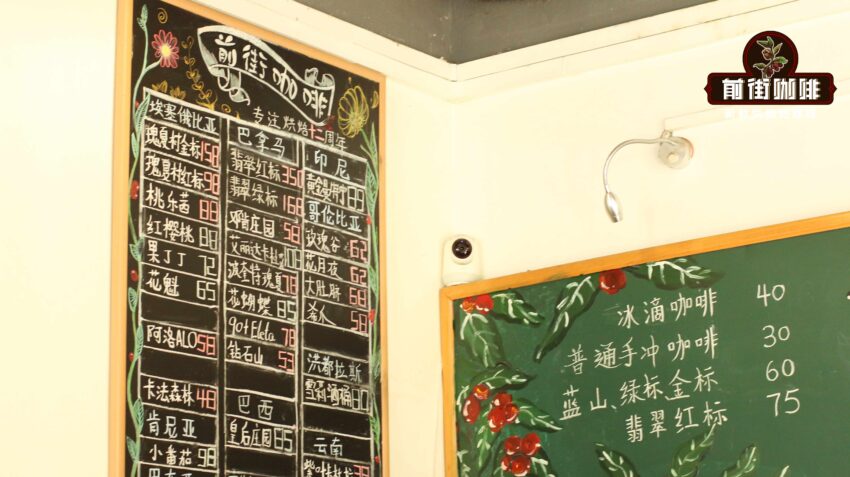 前街咖啡
专注烘焙十二周年
埃塞俄比亚
瑰夏村金标 158
瑰夏村红标 98
桃乐茜 88
红樱桃 88
果丁丁 72
花魁 65
阿洛ALO 58
卡法森林 48
肯尼亚
小番茄 98
巴拿马
翡翠红标 350
翡翠绿标 168
邓肯庄园 58
艾丽达卡杜艾
波奎特瑰夏 78
花蝴蝶 85
90+Eleta 78
钻石山 53
巴西
皇后庄园 85
印尼
黄金曼特宁 89
哥伦比亚
玫瑰谷 62
花月夜 62
大肚脐 68
58
洪都拉斯
雪莉酒桶 80
云南
前街咖啡
冰滴咖啡 40
普通手冲咖啡 30
蓝山、绿标、金标 60
翡翠红标 75